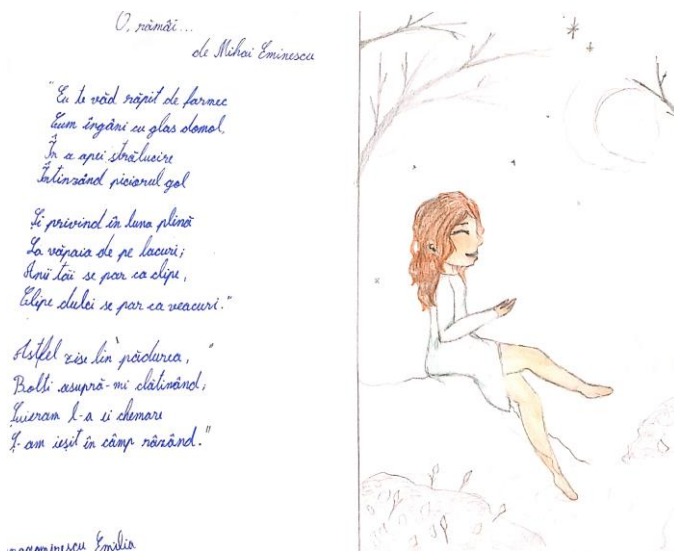 O, rămâi...
de Mihai Eminescu
"Eu te văd răpit de farmec
Cum îngâni cu glas domol,
În a apei strălucire
Întinzând piciorul gol
Și privind în luna plină
La văpaia de pe lacuri;
Anii tăi se par ca clipe,
Clipe dulci se par ca veacuri."
Astfel zise lin pădurea,"
Bolți asupră-mi clătinând;
Șuieram l-a ei chemare
Ș-am ieșit în câmp râzând."
Emilia